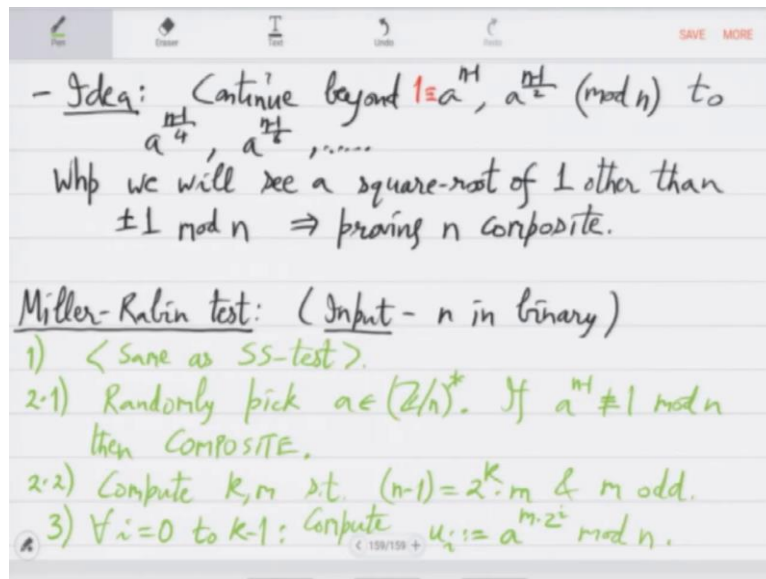 Pen Eraser Text Undo Redo SAVE MORE
- Idea: Continue beyond 1≡a^{n-1}, a^{\frac{n-1}{2}} (mod n) to
a^{\frac{n-1}{4}}, a^{\frac{n-1}{8}}, ......
Whp we will see a square-root of 1 other than
±1 mod n ⇒ proving n composite.
Miller-Rabin test: (Input - n in binary)
1) <Same as SS-test>.
2.1) Randomly pick a∈(Z/n)^*. If a^{n-1} ≢ 1 mod n
then COMPOSITE.
2.2) Compute k,m s.t. (n-1)=2^k·m & m odd.
3) ∀i=0 to k-1: Compute u_i := a^{m·2^i} mod n.
< 159/159 +